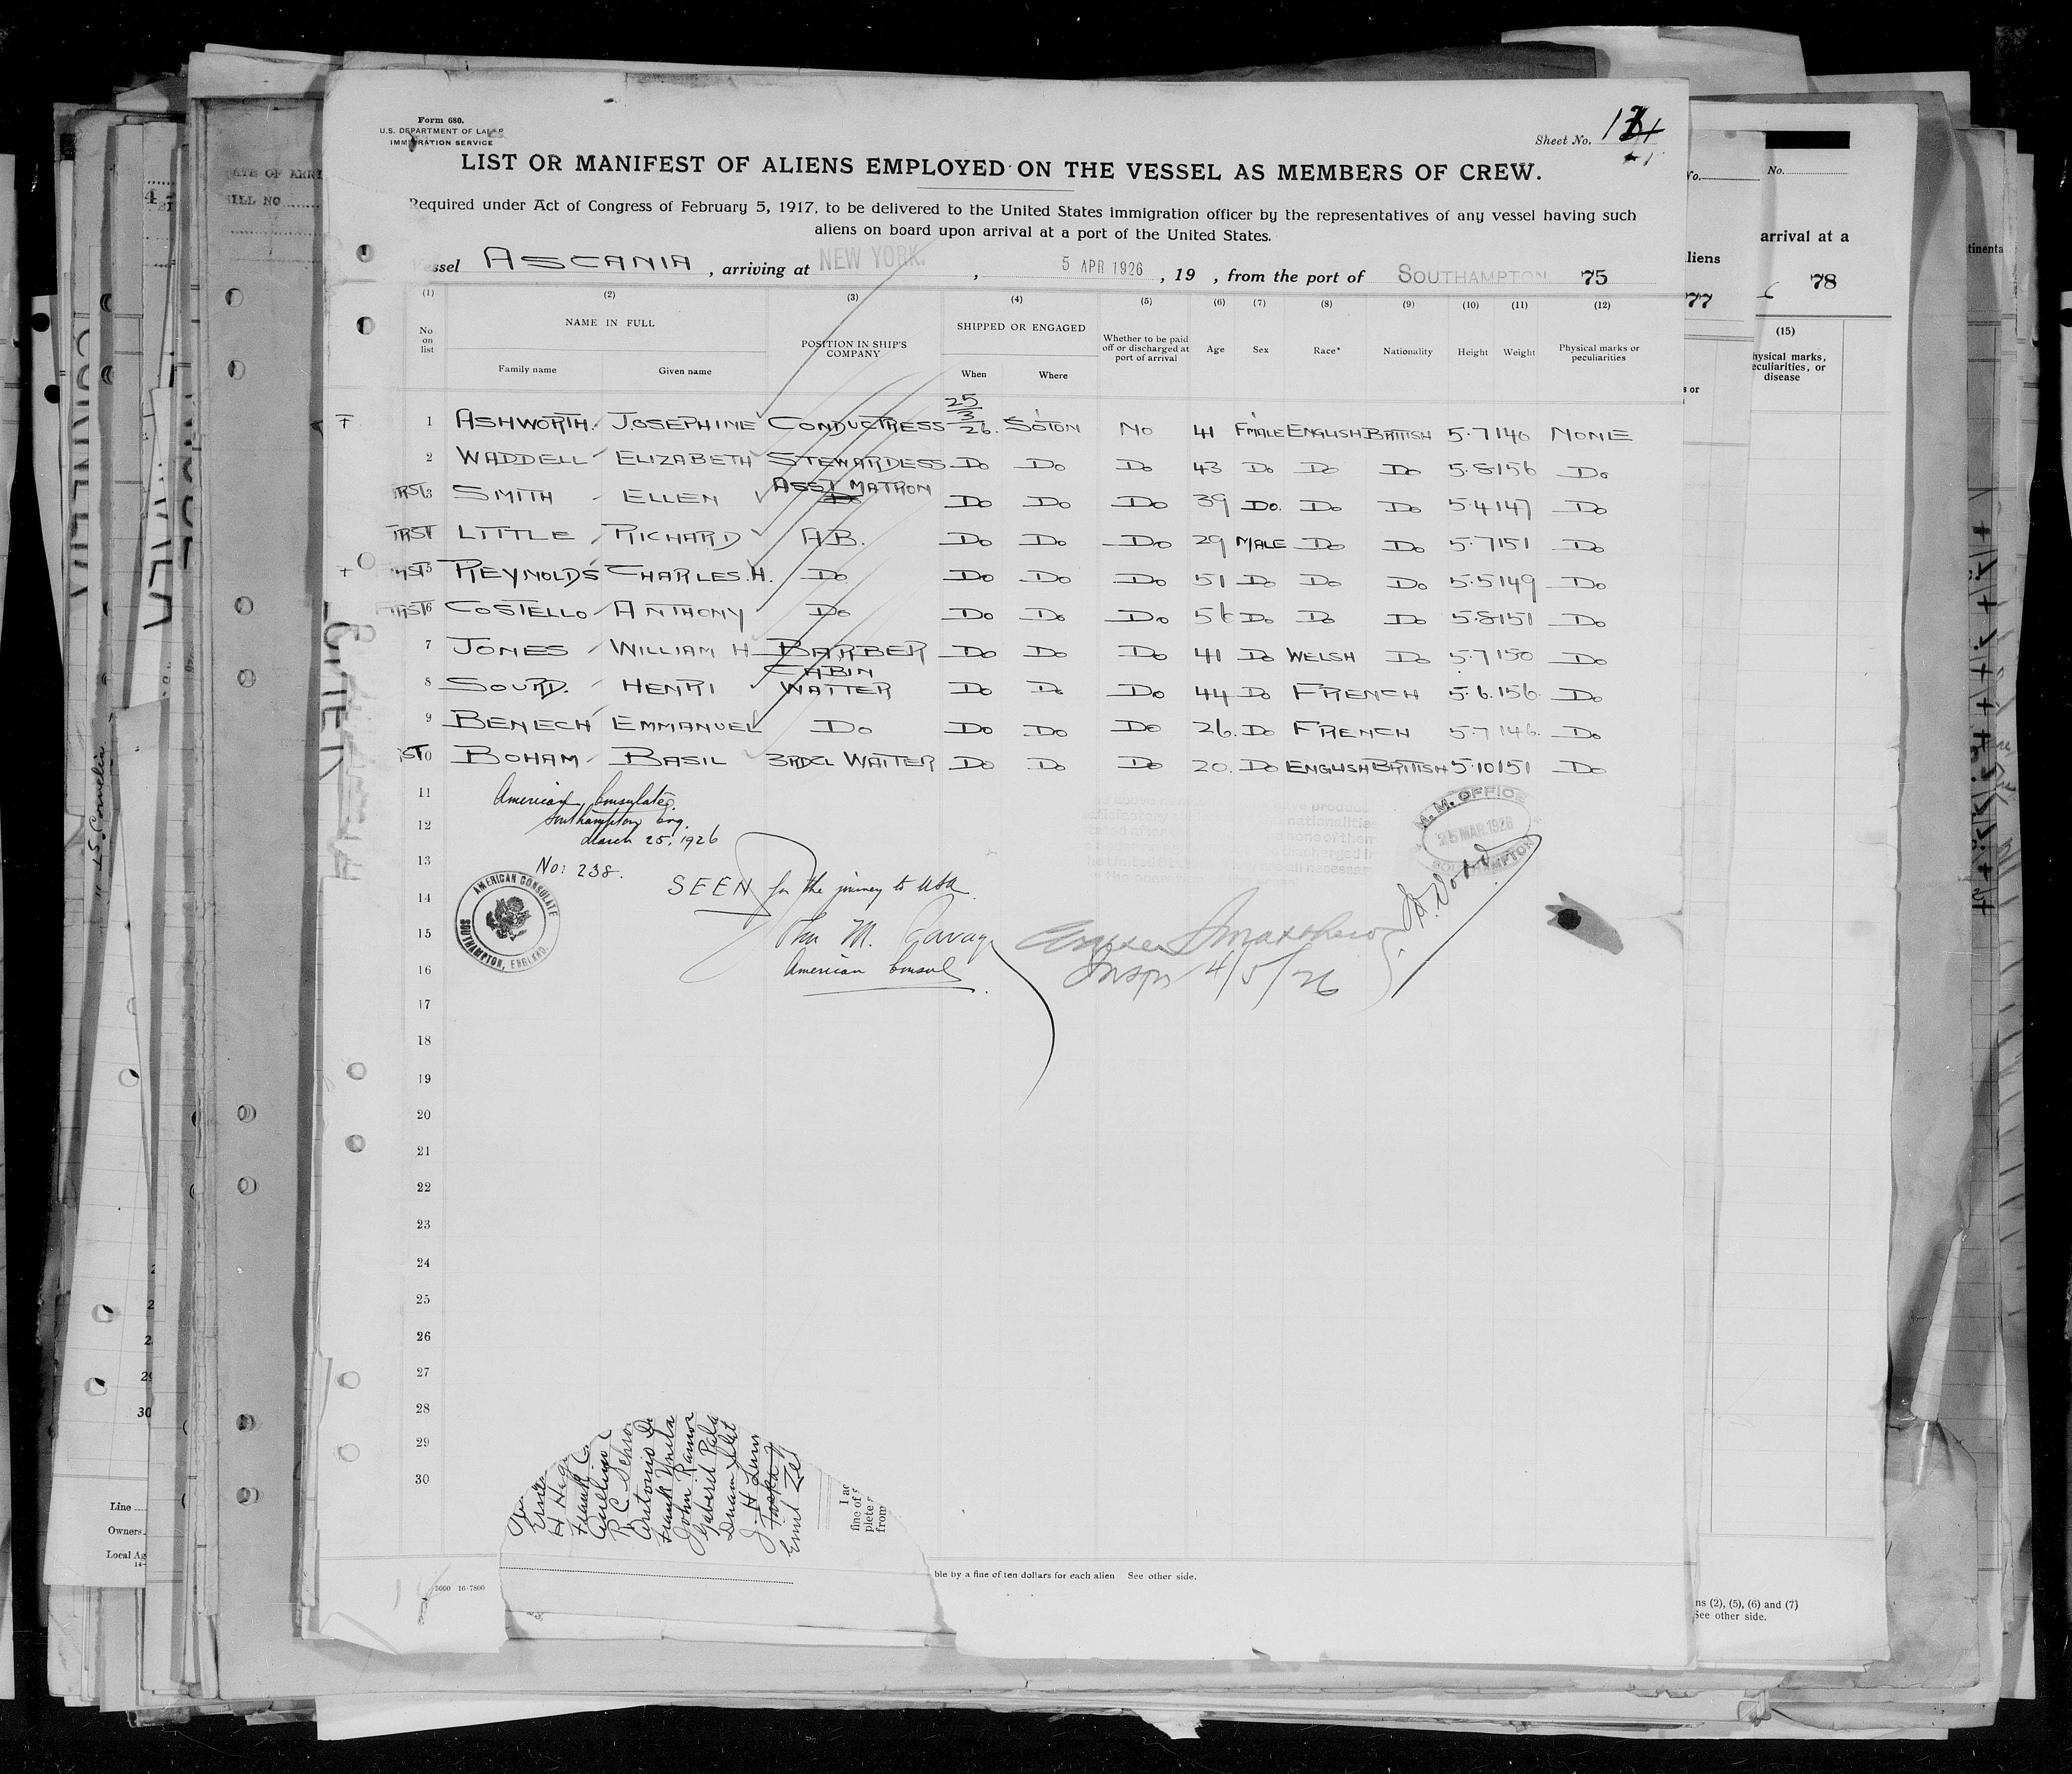 Form 680.
U.S. DEPARTMENT OF LABOR
IMMIGRATION SERVICE
Sheet No.
LIST OR MANIFEST OF ALIENS EMPLOYED ON THE VESSEL AS MEMBERS OF CREW.
Required under Act of Congress of February 5, 1917, to be delivered to the United States immigration officer by the representatives of any vessel having such
aliens on board upon arrival at a port of the United States.
Vessel ASCANIA, arriving at NEW YORK., 5 APR 1926, 19 , from the port of SOUTHAMPTON 75
(1) (2) (3) (4) (5) (6) (7) (8) (9) (10) (11) (12)
No on list NAME IN FULL POSITION IN SHIP'S COMPANY SHIPPED OR ENGAGED Whether to be paid off or discharged at port of arrival Age Sex Race* Nationality Height Weight Physical marks or peculiarities
Family name Given name When Where
1 ASHWORTH. JOSEPHINE CONDUCTRESS 25/3/26. SOTON NO 41 FMALE ENGLISH BRITISH 5.7 140 NONE
2 WADDELL ELIZABETH STEWARDESS DO DO DO 43 DO DO DO 5.8 156 DO
3 SMITH ELLEN ASST MATRON DO DO DO 39 DO. DO DO 5.4 147 DO
LITTLE RICHARD A.B. DO DO DO 29 MALE DO DO 5.7 151 DO
5 REYNOLDS CHARLES.H. DO DO DO DO 51 DO DO DO 5.5 149 DO
6 COSTELLO ANTHONY DO DO DO DO 56 DO DO DO 5.8 151 DO
7 JONES WILLIAM H BARBER DO DO DO 41 DO WELSH DO 5.7 150 DO
8 SOURD. HENRI CABIN WAITER DO DO DO 44 DO FRENCH 5.6. 156. DO
9 BENECH EMMANUEL DO DO DO DO 26. DO FRENCH 5.7 146. DO
BOHAM BASIL 3RD CL WAITER DO DO DO 20. DO ENGLISH BRITISH 5.10 151 DO
11
American Consulate,
12
Southampton Eng.
March 25, 1926
13
No: 238.
M. M. OFFICE
25 MAR. 1926
SOUTHAMPTON
14
SEEN for the journey to USA.
AMERICAN CONSULATE
SOUTHAMPTON, ENGLAND.
15
16
American Consul
Inspr 4/5/26
17
18
19
20
21
22
23
24
25
26
27
28
29
30
John Ramos
ble by a fine of ten dollars for each alien See other side.
5000 16-7800
DATE OF ARRI
BILL NO
Line
Owners
Local Ag
30
No.
No.
arrival at a
liens
77
78
(15)
hysical marks,
eculiarities, or
disease
s or
tinenta
ns (2), (5), (6) and (7)
See other side.